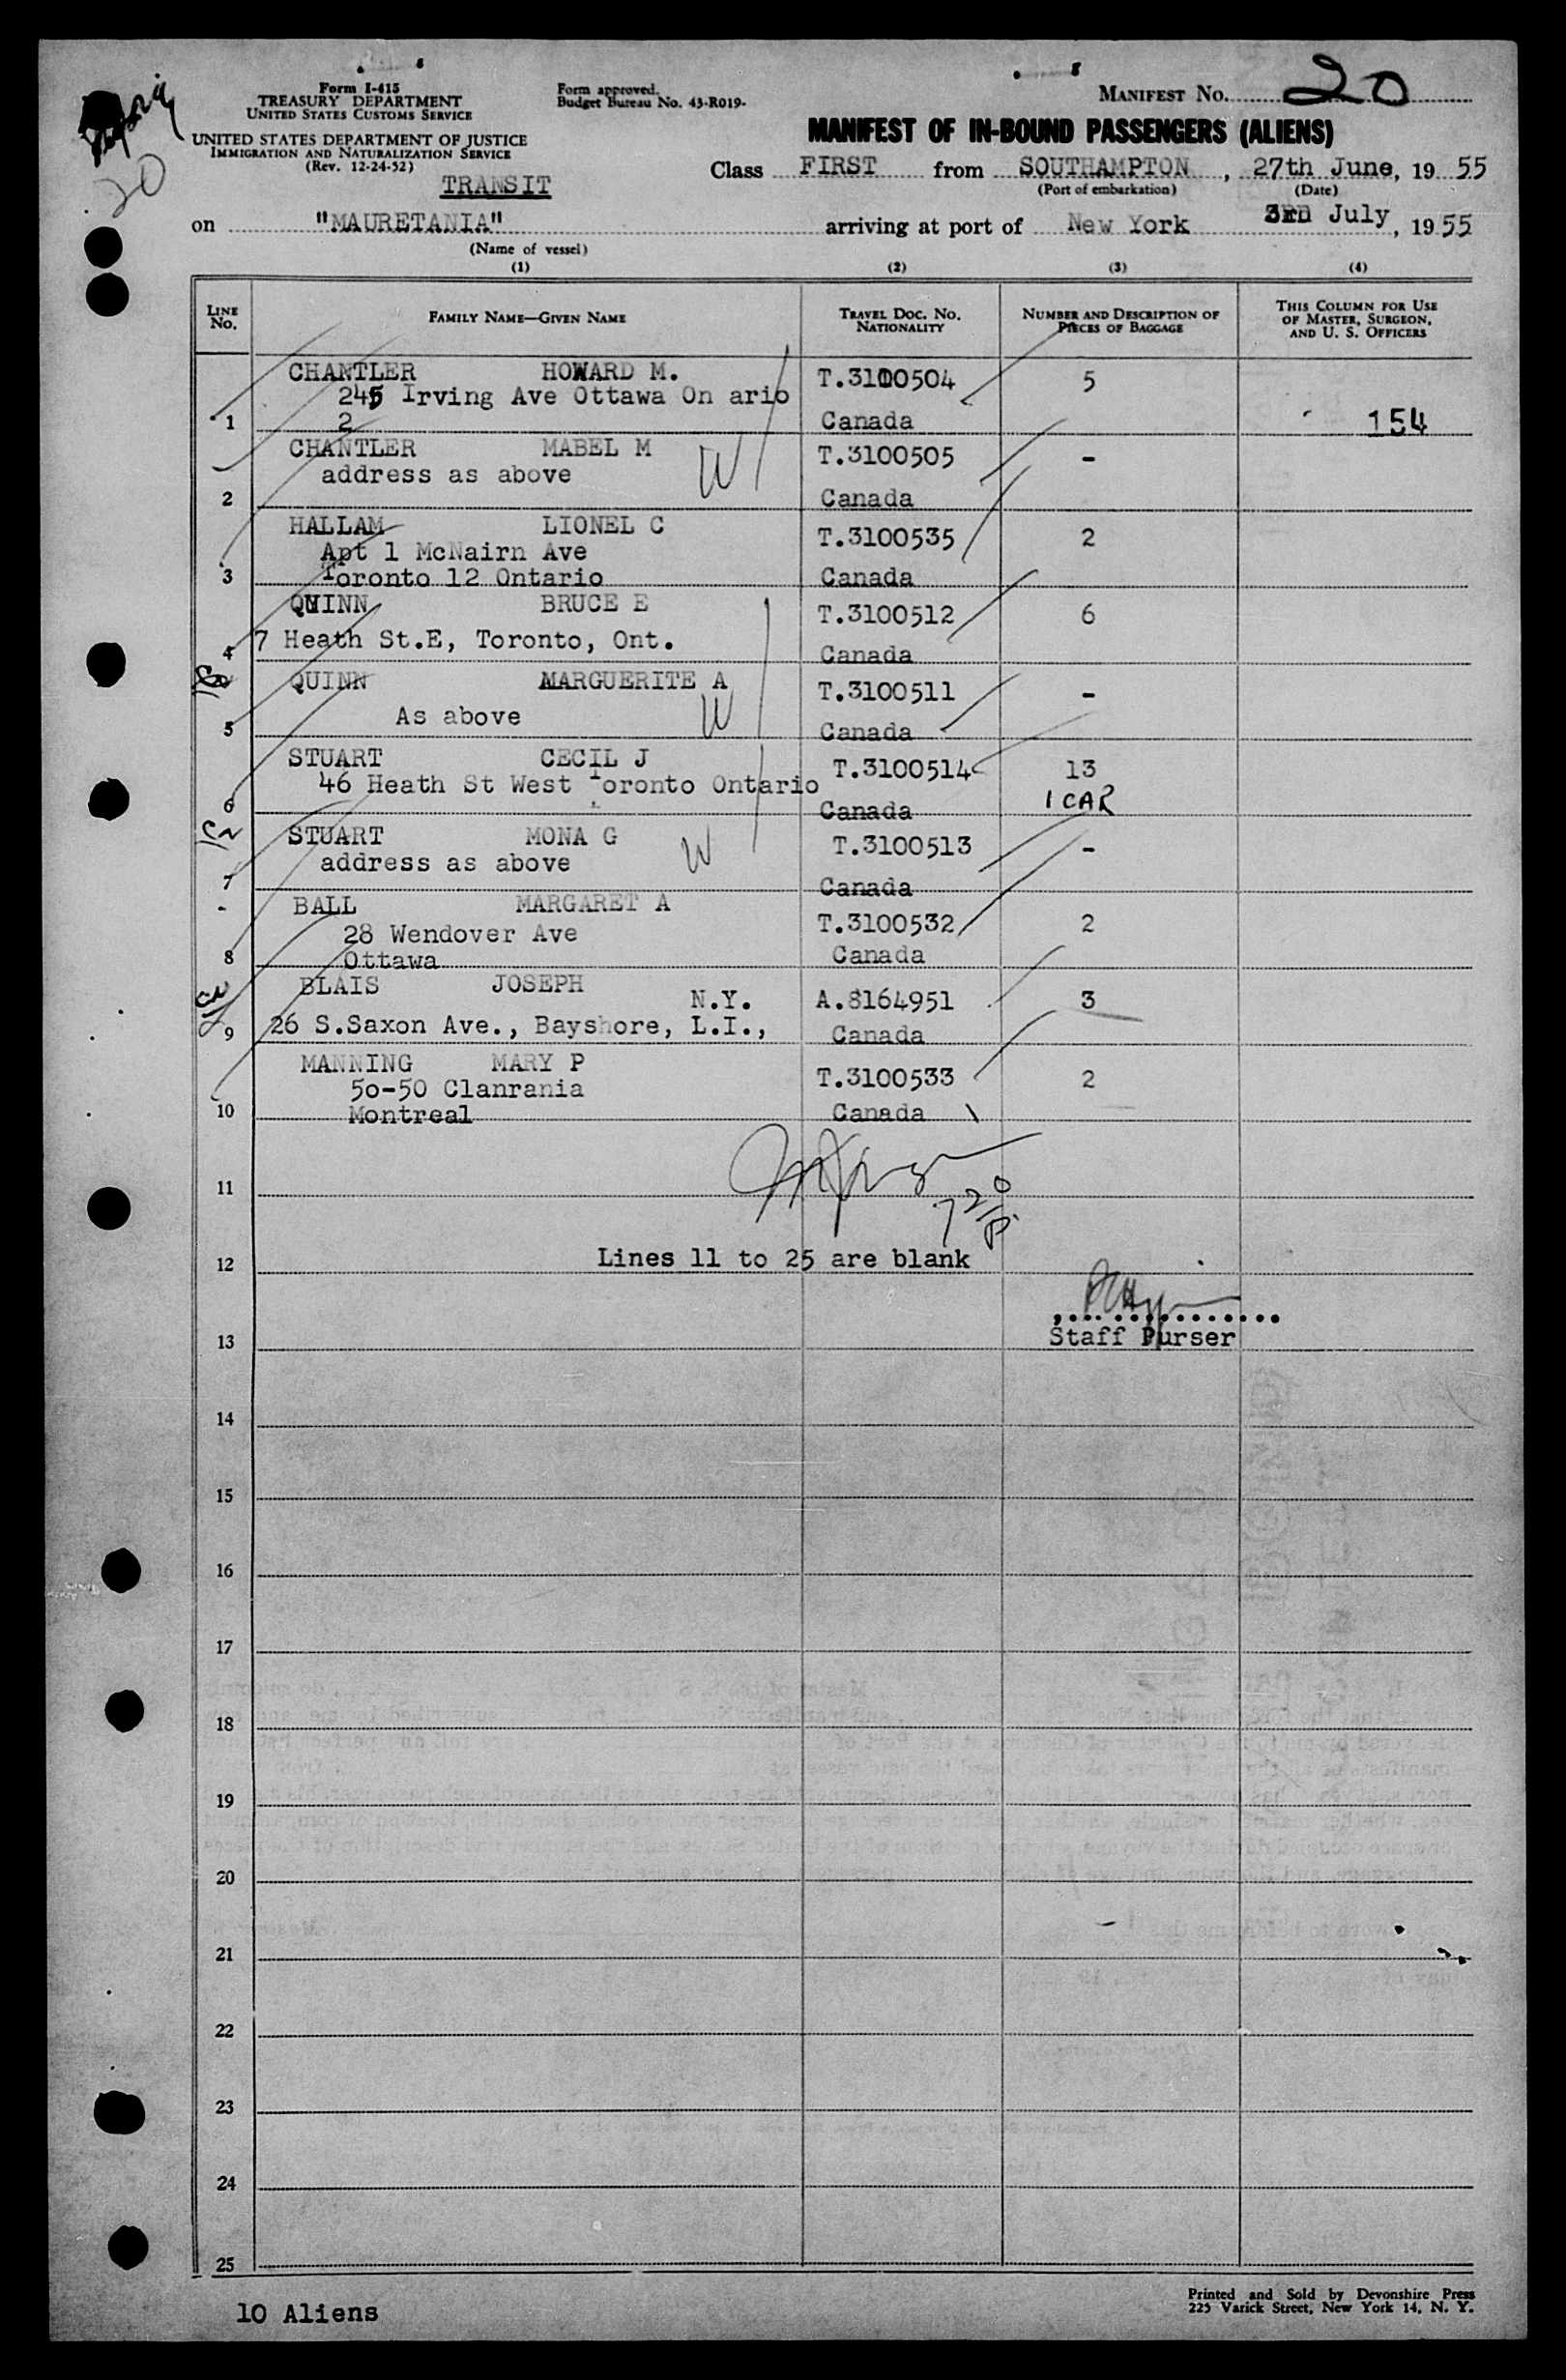 Form I-415
TREASURY DEPARTMENT
UNITED STATES CUSTOMS SERVICE
UNITED STATES DEPARTMENT OF JUSTICE
IMMIGRATION AND NATURALIZATION SERVICE
(Rev. 12-24-52)
TRANSIT
Form approved.
Budget Bureau No. 43-R019.
MANIFEST NO. 20
MANIFEST OF IN-BOUND PASSENGERS (ALIENS)
20
Class FIRST from SOUTHAMPTON, 27th June, 19 55
(Port of embarkation) (Date)
on "MAURETANIA" arriving at port of New York 3RD July, 19 55
(Name of vessel)
(1) (2) (3) (4)
LINE NO. FAMILY NAME—GIVEN NAME TRAVEL DOC. NO. NATIONALITY NUMBER AND DESCRIPTION OF PIECES OF BAGGAGE THIS COLUMN FOR USE OF MASTER, SURGEON, AND U. S. OFFICERS
CHANTLER HOWARD M. T.3100504 5
245 Irving Ave Ottawa On ario
1 2 Canada 154
CHANTLER MABEL M W T.3100505 -
address as above
2 Canada
HALLAM LIONEL C T.3100535 2
Apt 1 McNairn Ave
3 Toronto 12 Ontario Canada
QUINN BRUCE E T.3100512 6
4 7 Heath St.E, Toronto, Ont. Canada
QUINN MARGUERITE A W T.3100511 -
5 As above Canada
STUART CECIL J T.3100514 13
46 Heath St West Toronto Ontario
6 Canada 1 CAR
STUART MONA G W T.3100513 -
address as above
7 Canada
BALL MARGARET A T.3100532 2
28 Wendover Ave
8 Ottawa Canada
BLAIS JOSEPH A.8164951 3
N.Y.
9 26 S.Saxon Ave., Bayshore, L.I., Canada
MANNING MARY P T.3100533 2
50-50 Clanrania
10 Montreal Canada
11
12 Lines 11 to 25 are blank
13 Staff Purser
14
15
16
17
18
19
20
21
22
23
24
25
10 Aliens
Printed and Sold by Devonshire Press
225 Varick Street, New York 14, N. Y.